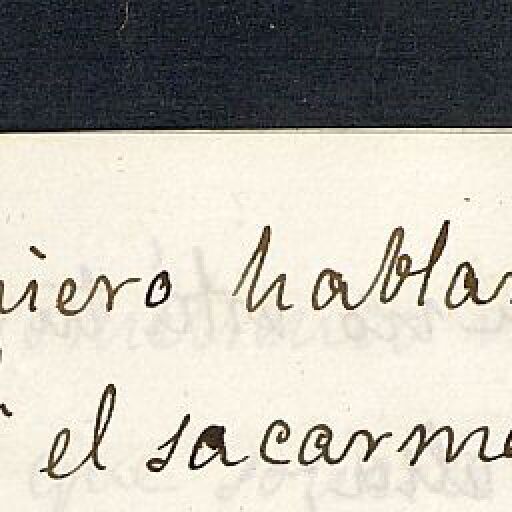 uiero hablar
el sacarme